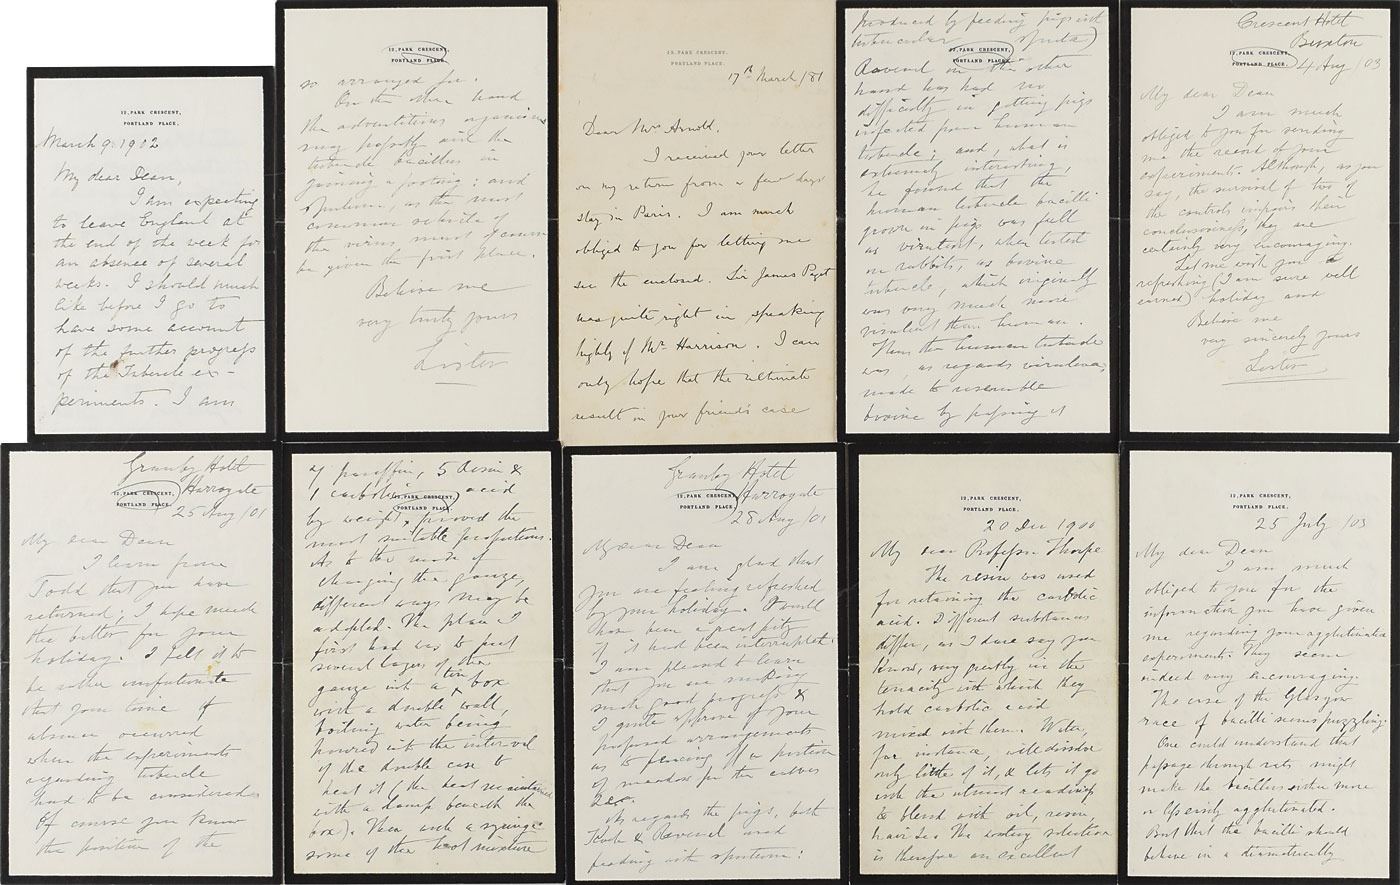 12, PARK CRESCENT,
PORTLAND PLACE.
March 9. 1902
My dear Dean,
I am expecting
to leave England at
the end of the week for
an absence of several
weeks. I should much
like before I go to
have some account
of the further progress
of the Tubercle ex-
periments. I am
12, PARK CRESCENT,
PORTLAND PLACE.
so arranged for.
On the other hand
the adventitious organisms
may properly aid the
tubercle bacillus in
gaining a footing: and
sputum, as the most
common vehicle of
the virus, must of course
be given the first place.
Believe me
very truly yours
Lister
12, PARK CRESCENT,
PORTLAND PLACE.
17th March /81
Dear Mrs Arnold,
I received your letter
on my return from a few days'
stay in Paris. I am much
obliged to you for letting me
see the enclosed. Sir James Paget
was quite right in speaking
highly of Mr Harrison. I can
only hope that the ultimate
result in your friend's case
produced by feeding pigs with
tubercular sputa)
12, PARK CRESCENT,
PORTLAND PLACE.
Ravenel on the other
hand has had no
difficulty in getting pigs
infected from human
tubercle; and, what is
extremely interesting,
he found that the
human tubercle bacilli
grown in pigs was full
as virulent, when tested
on rabbits, as bovine
tubercle, which originally
was very much more
virulent than human.
Thus the human tubercle
was, as regards virulence,
made to resemble
bovine by passing it
Crescent Hotel
Buxton
12, PARK CRESCENT,
PORTLAND PLACE.
4 Aug /03
My dear Dean
I am much
obliged to you for sending
me the record of your
experiments. Although, as you
say, the survival of two of
the controls impairs their
conclusiveness, they are
certainly very encouraging.
Let me wish you a
refreshing (I am sure well
earned) holiday and
Believe me
very sincerely yours
Lister
Granby Hotel
Harrogate
12, PARK CRESCENT,
PORTLAND PLACE.
25 Aug /01
My dear Dean
I learn from
Todd that you have
returned; I hope much
the better for your
holiday. I felt it to
be rather unfortunate
that your time of
absence occurred
when the experiments
regarding tubercle
had to be considered.
Of course you know
the position of the
of paraffin, 5 resin &
1 carbolic acid
12, PARK CRESCENT,
PORTLAND PLACE.
by weight, proved the
most suitable proportions.
As to the mode of
charging the gauze,
different ways may be
adopted. The plan I
first had was to put
several layers of the
gauze into a tin box
with a double wall,
boiling water being
poured into the interval
of the double case to
heat it (the heat maintained
with a lamp beneath the
box). Then with a syringe
some of the hot mixture
Granby Hotel
Harrogate
12, PARK CRESCENT,
PORTLAND PLACE.
28 Aug /01
My dear Dean
I am glad that
you are feeling refreshed
by your holiday. It would
have been a great pity
if it had been interrupted.
I am pleased to learn
that you are making
such good progress &
I quite approve of your
proposed arrangements
as to fencing off a portion
of meadow for the calves
&c.
As regards the pigs, both
Koch & Ravenel used
feeding with sputum:
12, PARK CRESCENT,
PORTLAND PLACE.
20 Dec 1900
My dear Professor Thorpe
The resin was used
for retaining the carbolic
acid. Different substances
differ, as I dare say you
know, very greatly in the
tenacity with which they
hold carbolic acid
mixed with them. Water,
for instance, will dissolve
only little of it, & lets it go
with the utmost readiness
to blend with oil, resin,
hair &c. The watery solution
is therefore an excellent
12, PARK CRESCENT,
PORTLAND PLACE.
25 July /03
My dear Dean
I am much
obliged to you for the
information you have given
me regarding your agglutination
experiments. They seem
indeed very encouraging.
The case of the Glasgow
race of bacilli seems puzzling.
One could understand that
passage through rats might
make the bacillus either more
or less easily agglutinated.
But that the bacilli should
behave in a diametrically